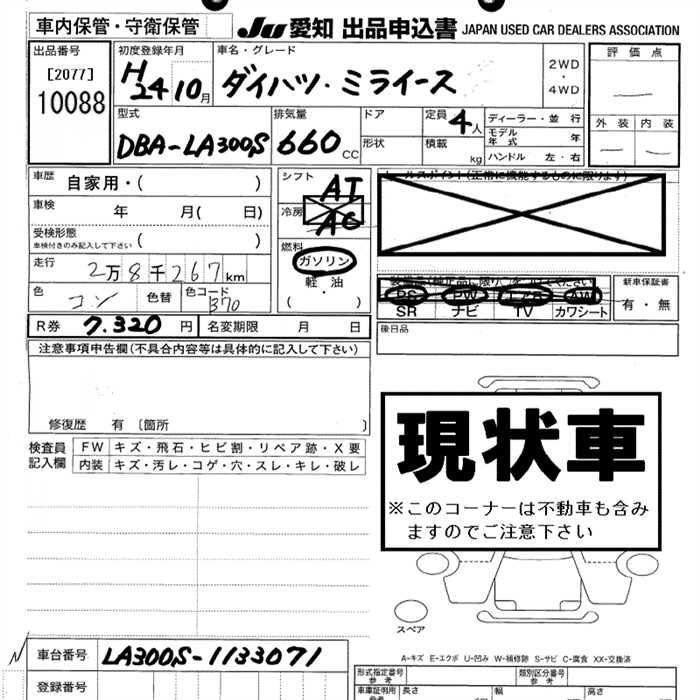 車内保管・守衛保管 JU 愛知 出品申込書 JAPAN USED CAR DEALERS ASSOCIATION
出品番号 初度登録年月 車名・グレード 評価点
[2077] H24 10月 ダイハツ・ミライース 2WD・4WD
10088
型式 排気量 ドア 定員 4人 ディーラー・並行 外装 内装
DBA-LA300S 660cc 形状 積載 kg モデル年式 年
ハンドル 左・右
車歴 自家用・( ) シフト AT
車検 年 月( 日) 冷房 AC
受検形態 ( )
車検付きのみ記入して下さい
燃料 ガソリン 軽油 ( ・ )
走行 2万8千267km
色 コン 色替 色コード B70
R券 7.320円 名変期限 月 日
セールスポイント(正常に機能するものに限ります)
PS PW エアB AW 新車保証書
SR ナビ TV カワシート 有・無
後日品
注意事項申告欄(不具合内容等は具体的に記入して下さい)
修復歴 有 〔箇所 〕
検査員記入欄 FW キズ・飛石・ヒビ割・リペア跡・X要
内装 キズ・汚レ・コゲ・穴・スレ・キレ・破レ
現状車
※このコーナーは不動車も含み
ますのでご注意下さい
スペア
A-キズ E-エクボ U-凹み W-補修跡 S-サビ C-腐食 XX-交換済
車台番号 LA300S-1133071
登録番号
形式指定番号 参考 類別区分番号 参考
車庫証明用 参考 長さ 幅 高さ